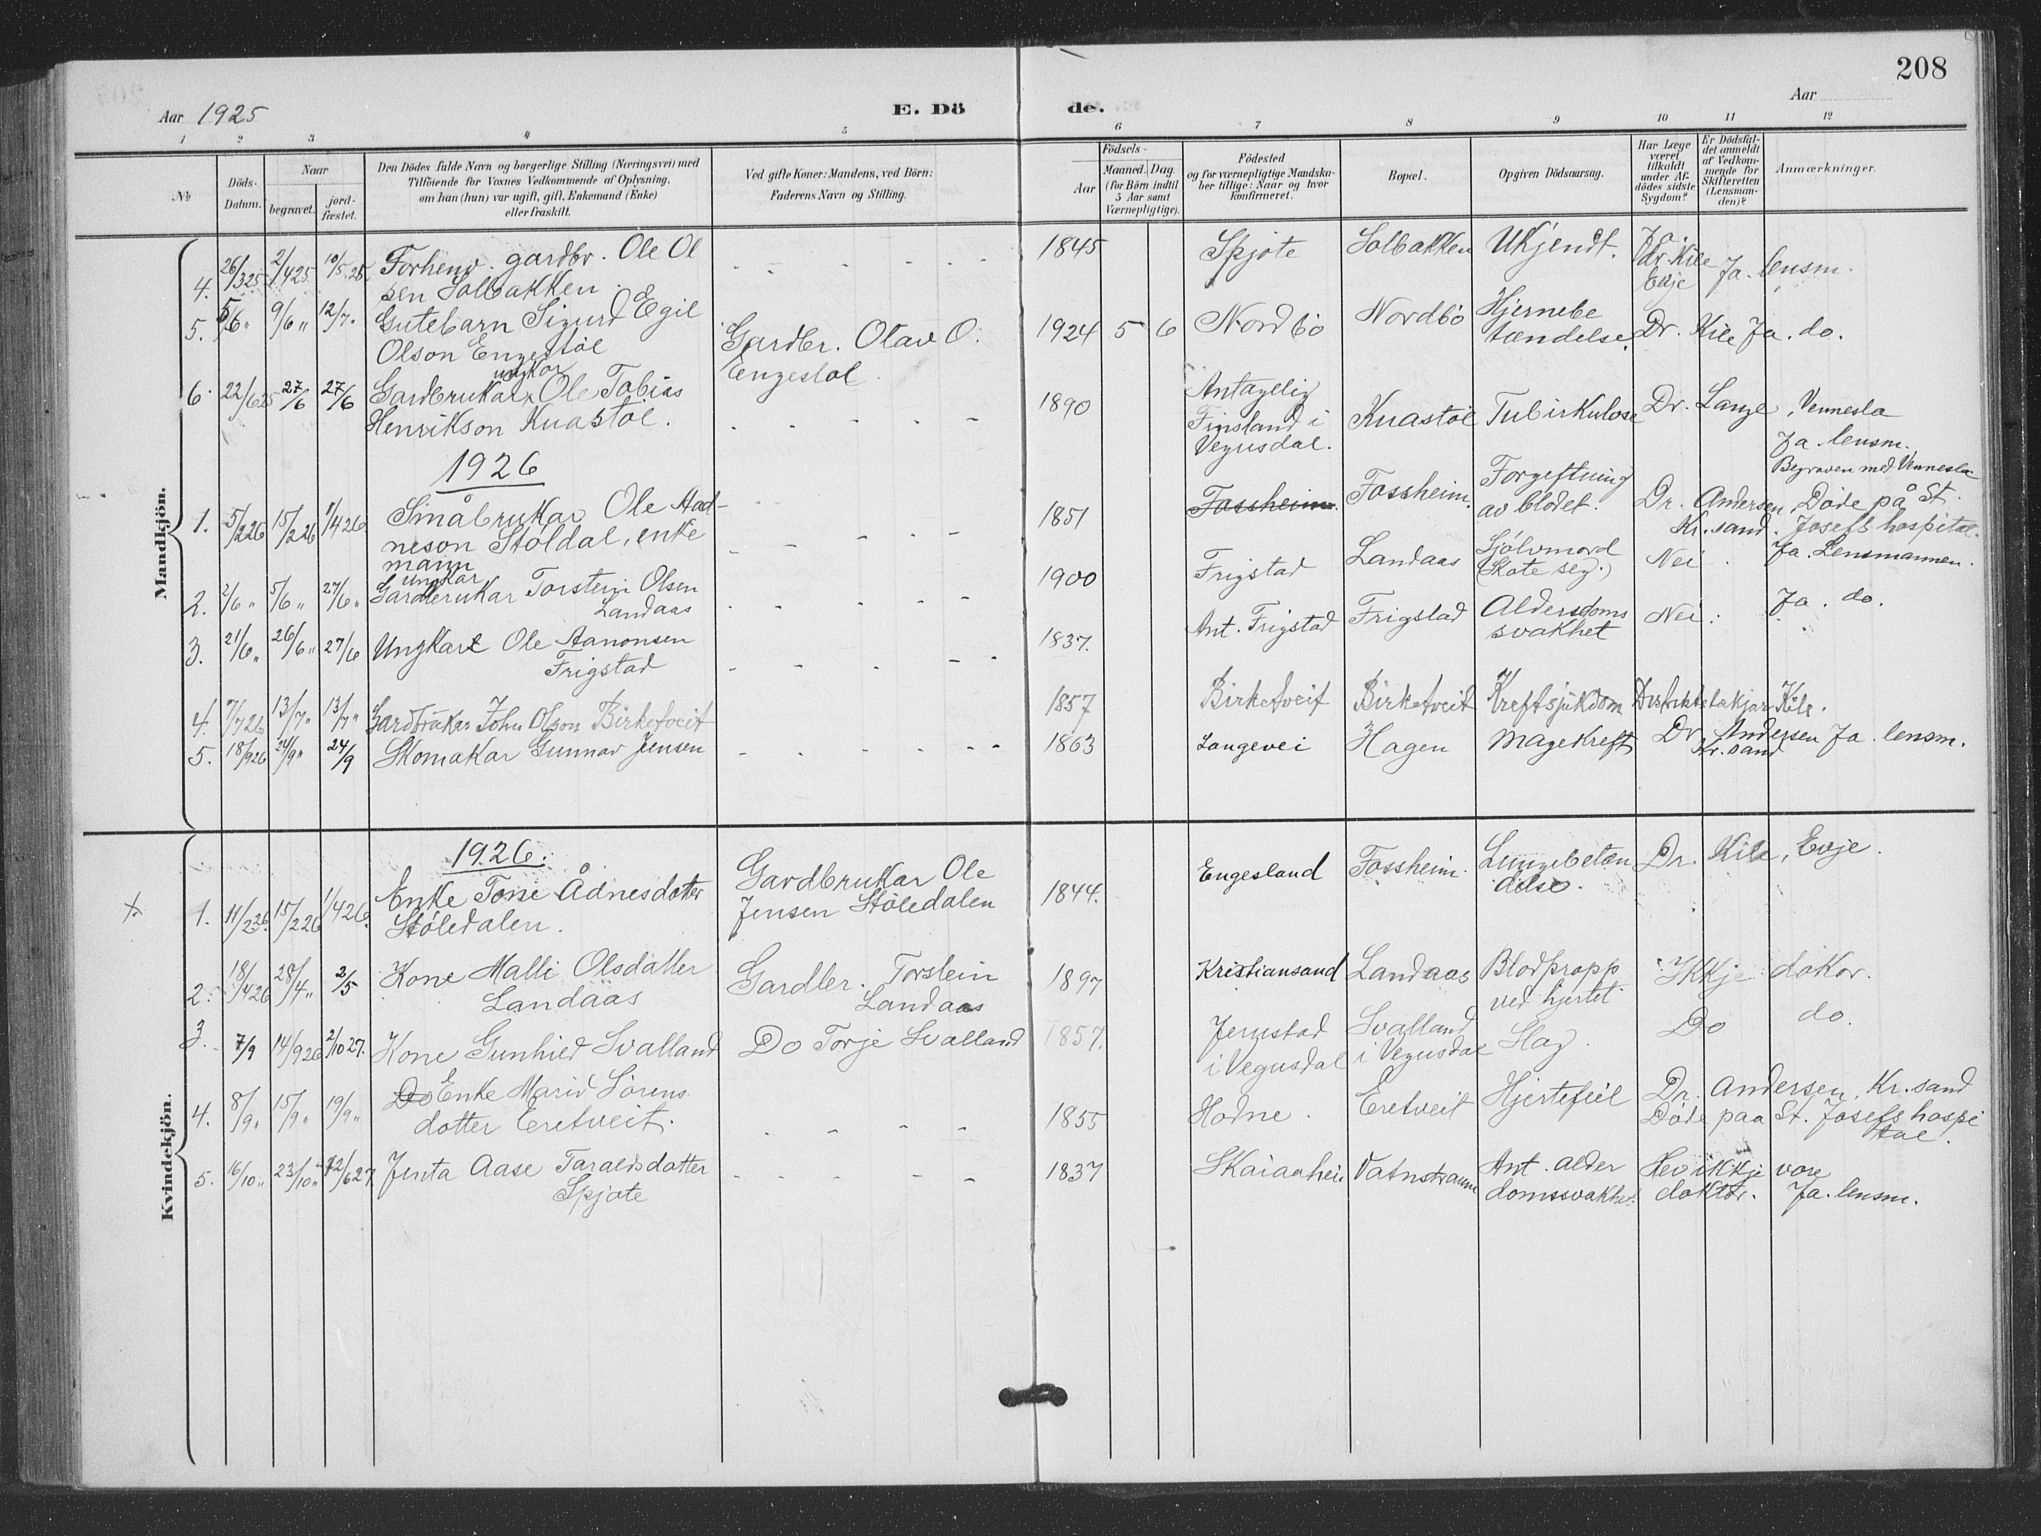 208
Aar 1925
E. Dö
de.
Aar
1 2 3 4 5 6 7 8 9 10 11 12
No
Döds-Datum.
Naar
begravet.
jord-fæstet.
Den Dödes fulde Navn og borgerlige Stilling (Næringsvei) med
Tilföiende for Voxnes Vedkommende af Oplysning,
om han (hun) var ugift, gift, Enkemand (Enke)
eller fraskilt.
Ved gifte Koner: Mandens, ved Börn:
Faderens Navn og Stilling.
Födsels-
Aar
Maaned. Dag.
(for Börn indtil
5 Aar samt
Værnepligtige).
Födested
og for værnepligtige Mandska-
ber tillige: Naar og hvor
konfirmeret.
Bopæl.
Opgiven Dödsaarsag.
Har Læge
været
tilkaldt
under Af-
dödes sidste
Sygdom?
Er Dödsfal-
det anmeldt
af Vedkom-
mende for
Skifteretten
(Lensman-
den)?
Anmærkninger.
Mandkjön.
4. 26/3 25 2/4 25 10/5 25 Forhenv. gardbr. Ole Ol
sen Solbakken. 1845 Spjote Solbakken Ukjendt. Ja. dr. Kile Evje Ja. lensm.
5. 5/6 " 9/6 " 12/7 " Gutebarn Sigurd Egil
Olson Engestöl Gardbr. Olav O.
Engestöl. 1924 5 6 Nordbö Nordbö Hjernebe
tændelse. Dr. Kile Ja. do.
6. 22/6 25 27/6 27/6 ungkar
Gardbrukar Ole Tobias
Henrikson Kuastöl. 1890 Antagelig
Finsland i
Vegusdal. Kuastöl Tubirkulose Dr. Lange, Vennesla
Ja lensm.
Begraven med Vennesla
1926
1. 5/2 26 15/2 26 1/4 26 Småbrukar Ole Aad-
neson Stöldal, enke
mann 1851 Fossheim. Fossheim. Forgeftning
av blodet. Dr. Andersen, Döde på St.
Kr.sand. Josefs hospital.
Ja. Lensmannen.
2. 2/6 " 5/6 " 27/6 " ungkar
Gardbrukar Torstein Olsen
Landaas 1900 Frigstad Landaas Sjölvmord
(Skote seg.) Nei. Ja. do.
3. 21/6 " 26/6 " 27/6 Ungkar Ole Aanonsen
Frigstad 1837. Ant. Frigstad Frigstad Aldersdoms
svakhet Nei.
4. 7/7 26 13/7 " 13/7 " Gardbrukar John Olson Birketveit 1857 Birketveit Birketveit Kreftsjukdom Distriktslækjar Kile.
5. 18/9 26 24/9 " 24/9 Skomakar Gunnar Jensen 1863 Langevei Hagen Magekreft Dr. Andersen Ja. lensm.
Kr.sand
Kvindekjön.
1926.
1. 11/2 26. 15/2 26 1/4 26. Enke Tone Ådnesdotter
Stöledalen. Gardbrukar Ole
Jensen Stöledalen 1844. Engesland Fossheim. Lungebetæn
delse. Dr. Kile, Evje.
2. 18/4 26 28/4 " 2/5 Kone Malli Olsdatter
Landaas Gardbr. Torstein
Landaas 1897 Kristiansand Landaas Blodpropp
ved hjertet Ikkje doktor.
3. 7/9 14/9 26 2/10 27. Kone Gunhild Svalland Do Torje Svalland 1857. Jerustad
i Vegusdal Svalland
i Vegusdal Slag. Do do.
4. 8/9 " 15/9 " 19/9 " Do Enke Marid Sörens
dotter Eretveit. 1855 Hodne. Eretveit Hjertefeil Dr. Andersen, Kr.sand
Döde paa St. Josefs hospi
tal.
5. 16/10 " 23/10 " 12/6 27. Jenta Aase Taraldsdotter
Spjote 1837 Skaiaahei Vatnstraum Ant. alder
domssvakhet. Hev ikkje vore
doktor. Ja. lensm.